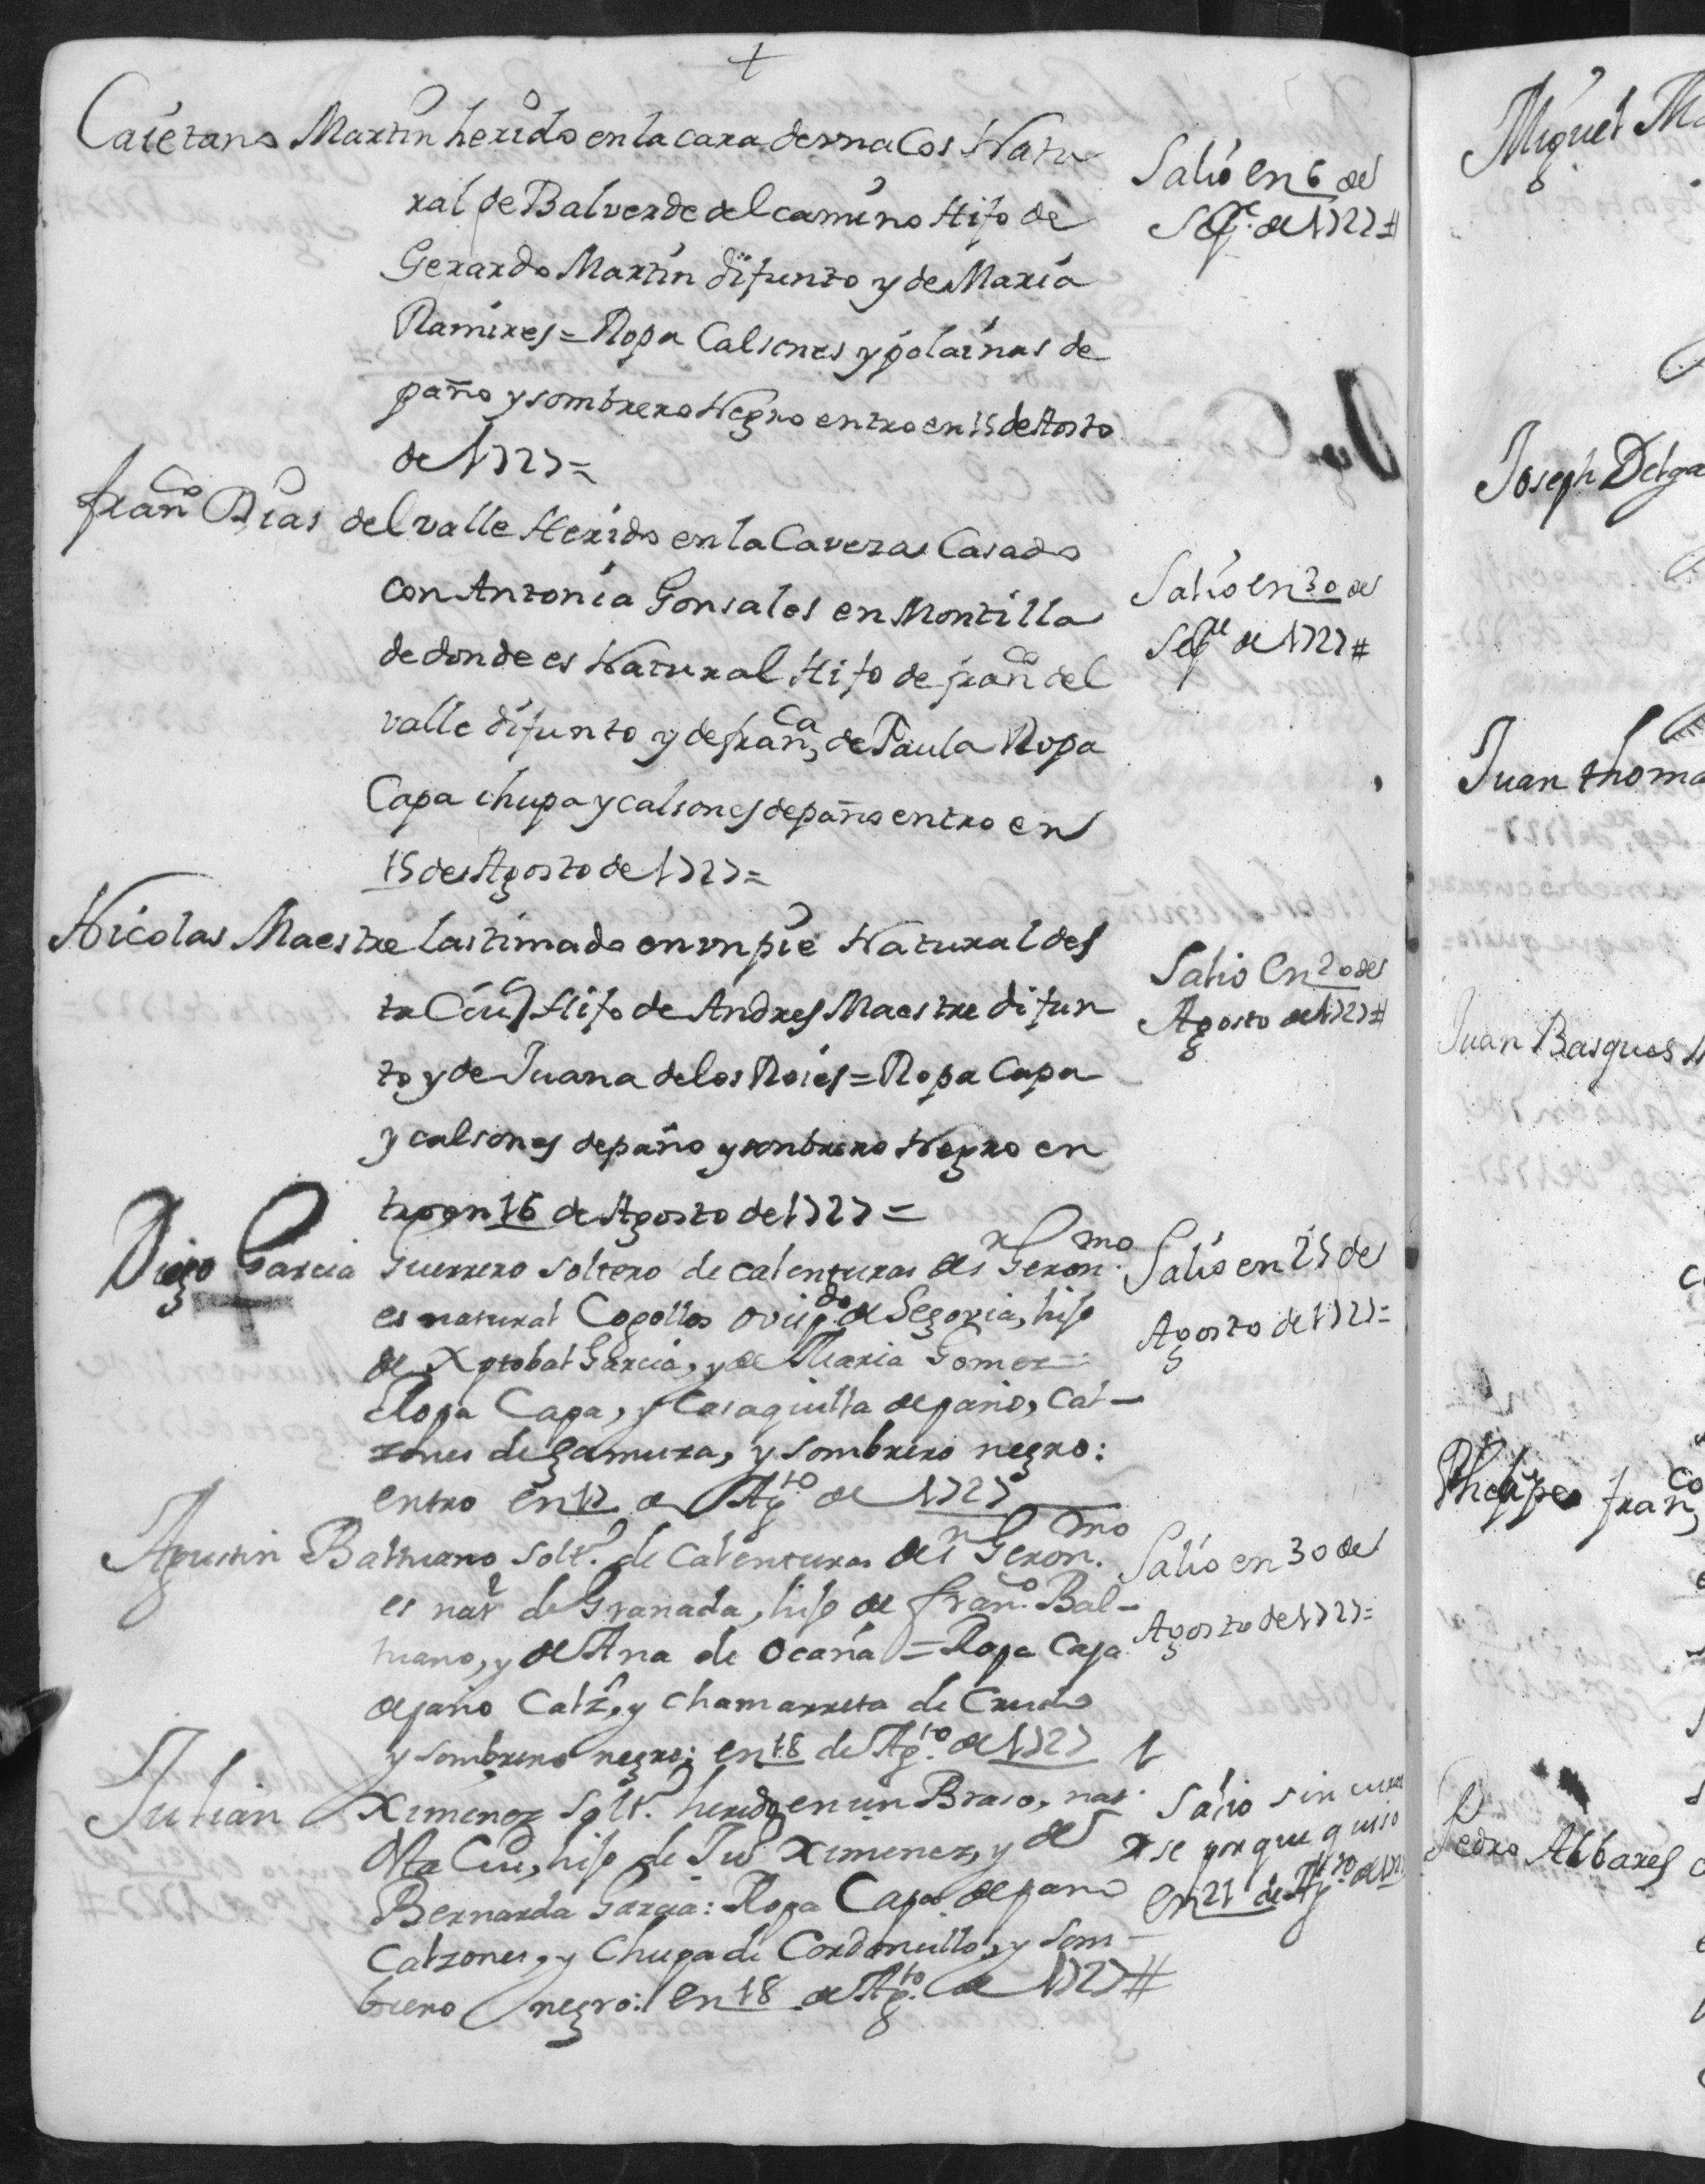 +
Caietano Martin herido en la cara de vna Cos Natu
ral de Balverde del camino Hijo de
Gerardo Martin difunto y de Maria
Ramires = Ropa Calsones y polainas de
paño y sombrero Negro entro en 15 de Aosto
de 1727 =
Salió en 6 de
Sepe. de 1727 #
franco Dias del valle Herido en la Caveza Casado
con Antonia Gonsales en Montilla
de donde es Natural Hijo de franco del
valle difunto y de franca de Paula Ropa
Capa chupa y calsones de paño entro en
15 de Agosto de 1727 =
Salió en 30 de
Sepe de 1727 #
Nicolas Maestre lastimado en vn pie Natural des
ta Ciud Hijo de Andres Maestre difun
to y de Juana de los Roies = Ropa Capa
y calsones de paño y sonbrero Negro en
tro en 16 de Agosto de 1727 =
Salio en 20 de
Agosto de 1727 #
Diego Garcia Guerrero soltero de calenturas de Sr Geronmo
es natural Cogollos ovispdo de Segovia, hijo
de Xptobal Garcia, y de Maria Gomez =
Ropa Capa, y Casaquilla de paño, Cal-
zones de gamuza, y sombrero negro:
entro en 17 de Agto de 1727
Salió en 25 de
Agosto de 1727 =
Agustin Baltuano solto. de Calenturas de Sr Geronmo
es natl de Granada, hijo de frano. Bal-
tuano, y de Ana de Ocaña = Ropa Capa
de paño Calzs, y chamarreta de Crudo
y sombrero negro; en 18 de Agto de 1727
Salió en 30 de
Agosto de 1727 =
Julian Ximenez solto. herido en un Braso, nat.
desta Ciud, hijo de Juo Ximenez, y de
Bernarda Garcia: Ropa Capa de paño
Calzones, y Chupa de Cordoncillo, y som-
brero negro: en 18 de Agto de 1727 #
Salio sin curar
se porque quiso
en 21 de Agto de 1727
Miguel
Joseph Delga
Juan thoma
Juan Basques
Phelipe franco
Pedro Albares